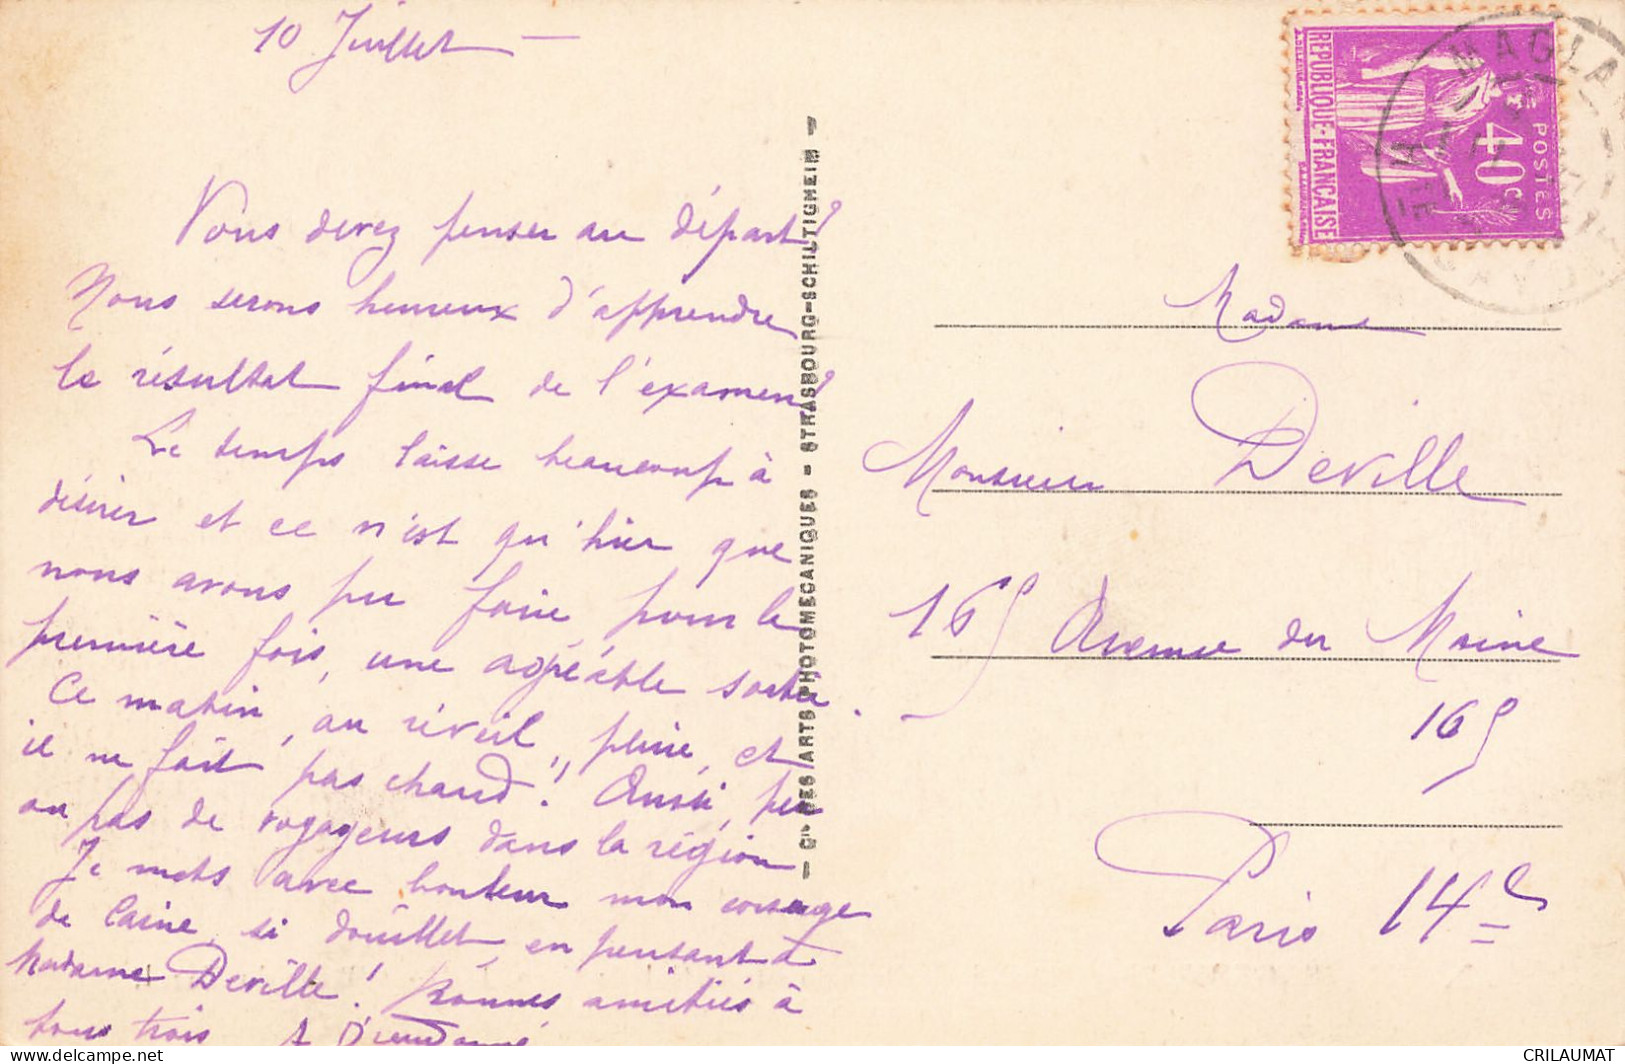 10 Juillet —
Vous devez penser au départ?
Nous serons heureux d'apprendre
le résultat final de l'examen?
Le temps laisse beaucoup à
désirer et ce n'est qu'hier que
nous avons pu faire, pour la
première fois, une agréable sortie.
Ce matin, au réveil, pluie, et
il ne fait pas chaud! Aussi, peu
ou pas de voyageurs dans la région
Je mets avec bonheur mon corsage
de laine, si douillet, en pensant à
Madame Deville! Bonnes amitiés à
tous trois
— Cie DES ARTS PHOTOMECANIQUES — STRASBOURG-SCHILTIGHEIM —
REPUBLIQUE-FRANÇAISE
POSTES
40c
MAGLAN
Hte SAVOIE
Madame
Monsieur Deville
165 Avenue du Maine
165
Paris 14e
CRILAUMAT
delcampe.net